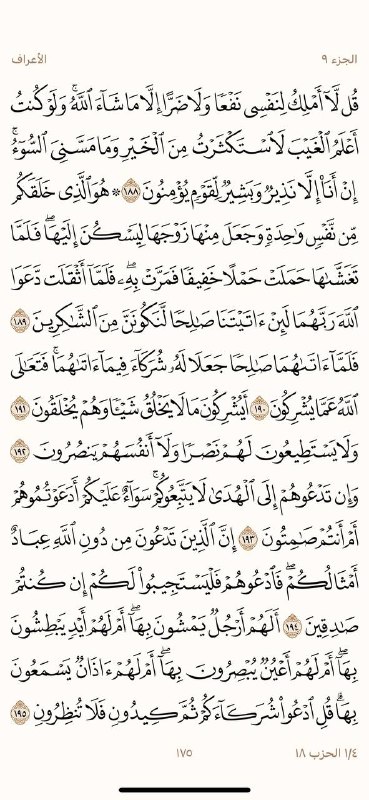 الجزء ٩
الأعراف
قُل لَّآ أَمْلِكُ لِنَفْسِى نَفْعًا وَلَا ضَرًّا إِلَّا مَا شَآءَ ٱللَّهُ ۚ وَلَوْ كُنتُ
أَعْلَمُ ٱلْغَيْبَ لَٱسْتَكْثَرْتُ مِنَ ٱلْخَيْرِ وَمَا مَسَّنِىَ ٱلسُّوٓءُ ۚ
إِنْ أَنَا۠ إِلَّا نَذِيرٌ وَبَشِيرٌ لِّقَوْمٍ يُؤْمِنُونَ ١٨٨ ۞ هُوَ ٱلَّذِى خَلَقَكُم
مِّن نَّفْسٍ وَٰحِدَةٍ وَجَعَلَ مِنْهَا زَوْجَهَا لِيَسْكُنَ إِلَيْهَا ۖ فَلَمَّا
تَغَشَّىٰهَا حَمَلَتْ حَمْلًا خَفِيفًا فَمَرَّتْ بِهِۦ ۖ فَلَمَّآ أَثْقَلَت دَّعَوَا
ٱللَّهَ رَبَّهُمَا لَئِنْ ءَاتَيْتَنَا صَٰلِحًا لَّنَكُونَنَّ مِنَ ٱلشَّٰكِرِينَ ١٨٩
فَلَمَّآ ءَاتَىٰهُمَا صَٰلِحًا جَعَلَا لَهُۥ شُرَكَآءَ فِيمَآ ءَاتَىٰهُمَا ۚ فَتَعَٰلَى
ٱللَّهُ عَمَّا يُشْرِكُونَ ١٩٠ أَيُشْرِكُونَ مَا لَا يَخْلُقُ شَيْـًٔا وَهُمْ يُخْلَقُونَ ١٩١
وَلَا يَسْتَطِيعُونَ لَهُمْ نَصْرًا وَلَآ أَنفُسَهُمْ يَنصُرُونَ ١٩٢
وَإِن تَدْعُوهُمْ إِلَى ٱلْهُدَىٰ لَا يَتَّبِعُوكُمْ ۚ سَوَآءٌ عَلَيْكُمْ أَدَعَوْتُمُوهُمْ
أَمْ أَنتُمْ صَٰمِتُونَ ١٩٣ إِنَّ ٱلَّذِينَ تَدْعُونَ مِن دُونِ ٱللَّهِ عِبَادٌ
أَمْثَالُكُمْ ۖ فَٱدْعُوهُمْ فَلْيَسْتَجِيبُوا۟ لَكُمْ إِن كُنتُمْ
صَٰدِقِينَ ١٩٤ أَلَهُمْ أَرْجُلٌ يَمْشُونَ بِهَآ ۖ أَمْ لَهُمْ أَيْدٍ يَبْطِشُونَ
بِهَآ ۖ أَمْ لَهُمْ أَعْيُنٌ يُبْصِرُونَ بِهَآ ۖ أَمْ لَهُمْ ءَاذَانٌ يَسْمَعُونَ
بِهَا ۗ قُلِ ٱدْعُوا۟ شُرَكَآءَكُمْ ثُمَّ كِيدُونِ فَلَا تُنظِرُونِ ١٩٥
١/٤ الحزب ١٨
١٧٥